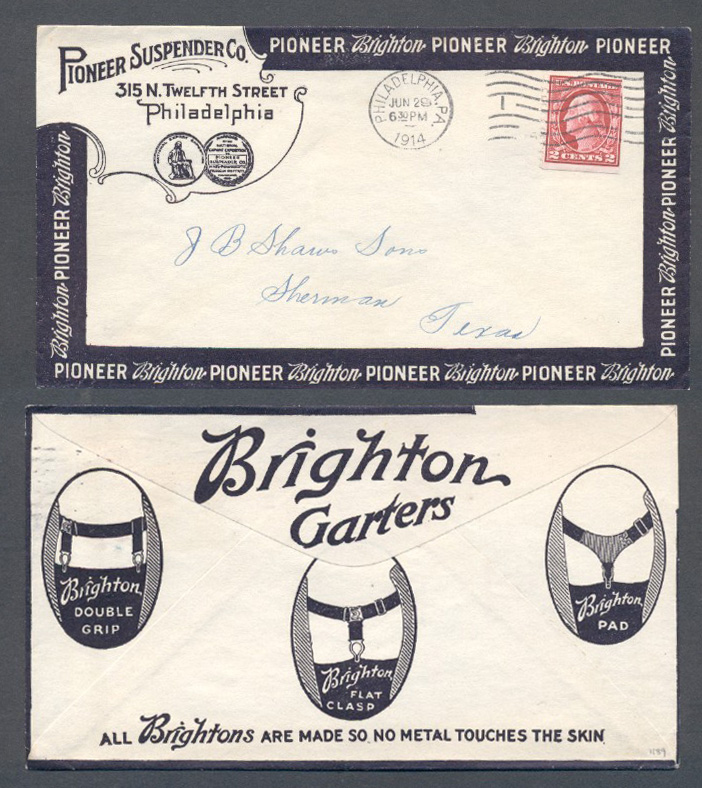 PIONEER SUSPENDER CO.
315 N. TWELFTH STREET
Philadelphia
PIONEER Brighton PIONEER Brighton PIONEER
Brighton PIONEER Brighton
PHILADELPHIA, PA.
JUN 26
630PM
1914
2 CENTS 2
Brighton PIONEER Brighton PIONEER
J B Shaws Sons
Sherman
Texas
PIONEER Brighton PIONEER Brighton PIONEER Brighton PIONEER Brighton
Brighton
Garters
Brighton
DOUBLE
GRIP
Brighton
FLAT
CLASP
Brighton
PAD
ALL Brightons ARE MADE SO NO METAL TOUCHES THE SKIN